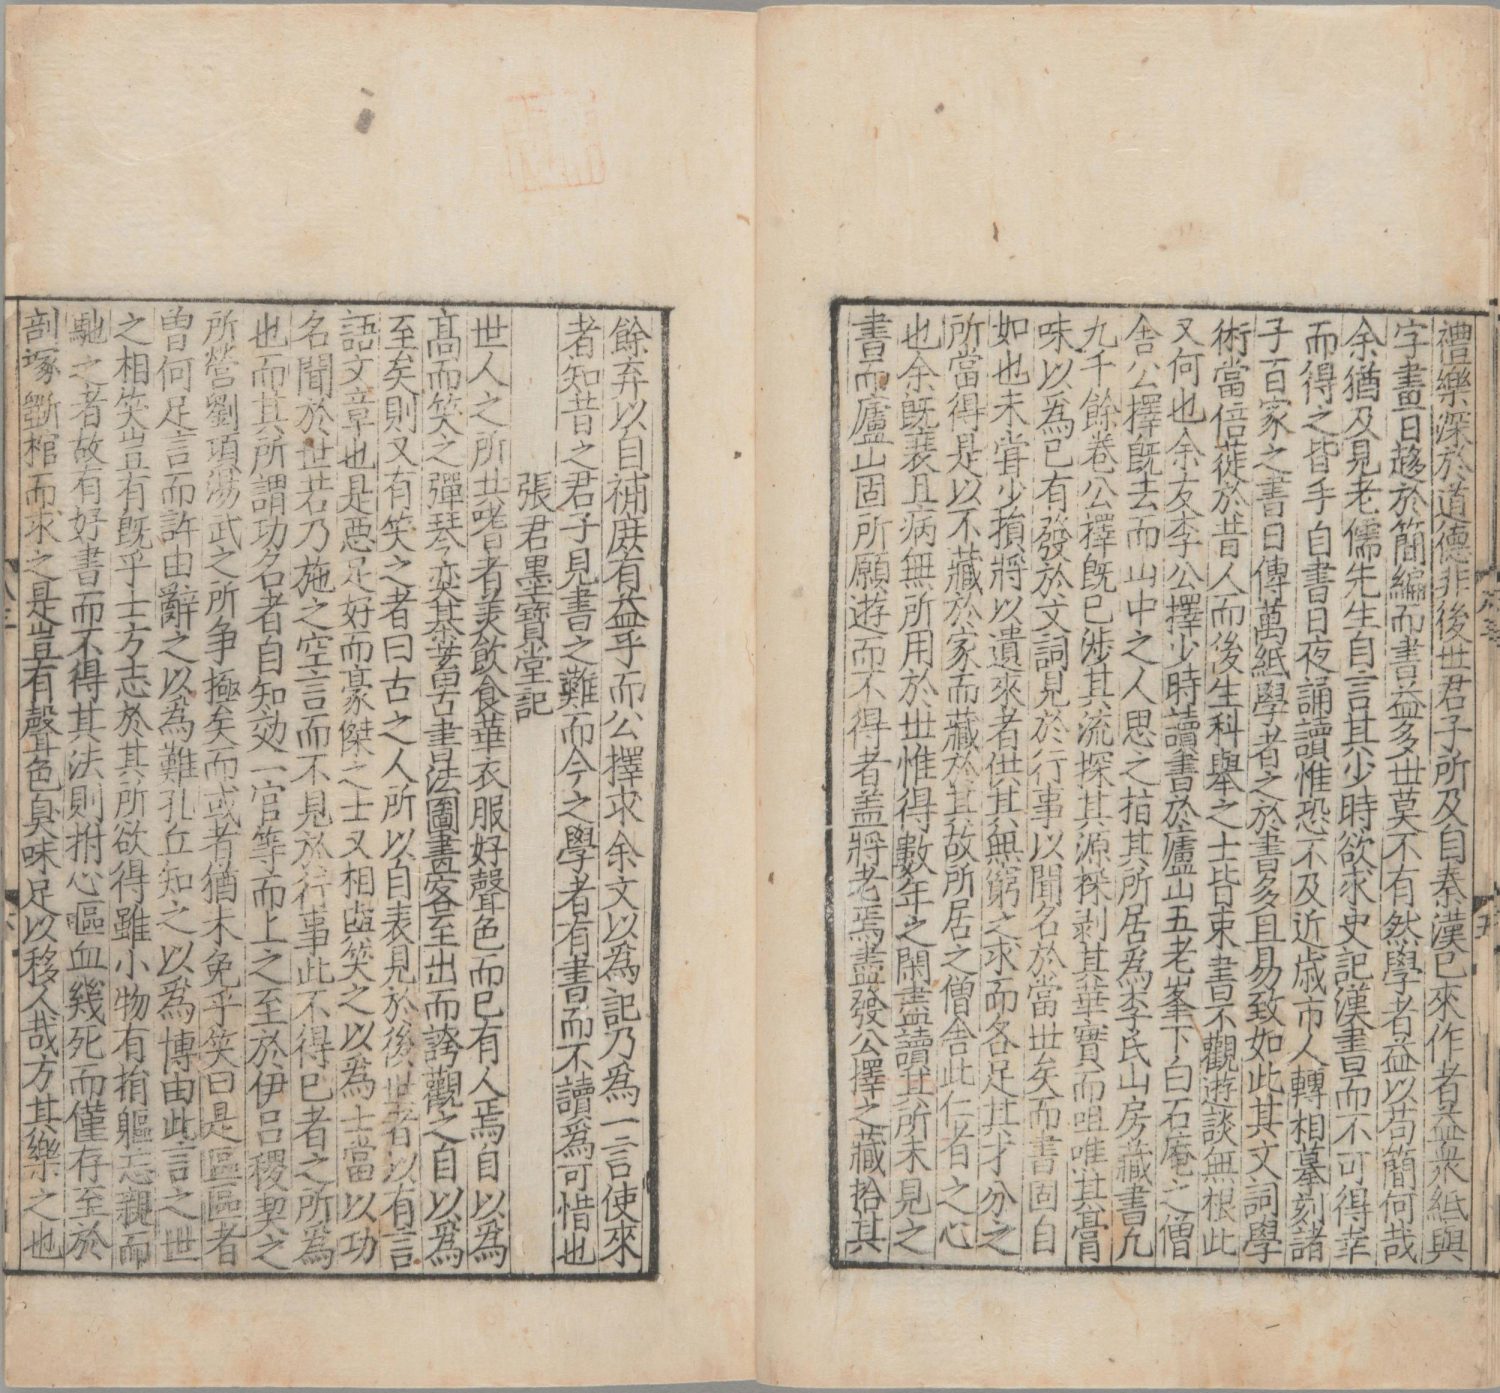 禮樂深於道德非後世君子所及自秦漢已來作者益衆紙與
字畫日趍於簡編而書益多世莫不有然學者益以苟簡何哉
余猶及見老儒先生自言其少時欲求史記漢書而不可得幸
而得之皆手自書日夜誦讀惟恐不及近歲市人轉相摹刻諸
子百家之書日傳萬紙學者之於書多且易致如此其文詞學
術當倍蓰於昔人而後生科舉之士皆束書不觀遊談無根此
又何也余友李公擇少時讀書於廬山五老峯下白石庵之僧
舎公擇既去而山中之人思之指其所居為李氏山房藏書凡
九千餘卷公擇既已涉其流探其源採剥其華實而咀㗖其膏
味以為已有發於文詞見於行事以聞名於當世矣而書固自
如也未甞少損將以遺來者供其無窮之求而各足其才分之
所當得是以不藏於家而藏於其故所居之僧舎此仁者之心
也余既衰且病無所用於世惟得數年之閑盡讀其所未見之
書而廬山固所願遊而不得者盖將老焉盡發公擇之藏拾其
餘弃以自補庶有益乎而公擇求余文以為記乃為一言使來
者知昔之君子見書之難而今之學者有書而不讀為可惜也
張君墨寶堂記
世人之所共嗜者美飲食華衣服好聲色而已有人焉自以為
髙而笑之彈琴奕棊蓄古書法圖畫客至出而誇觀之自以為
至矣則又有笑之者曰古之人所以自表見於後世者以有言
語文章也是惡足好而豪傑之士又相與笑之以為士當以功
名聞於世若乃施之空言而不見於行事此不得已者之所為
也而其所謂功名者自知効一官等而上之至於伊吕稷契之
所營劉項湯武之所争極矣而或者猶未免乎笑曰是區區者
曾何足言而許由辭之以為難孔丘知之以為博由此言之世
之相笑豈有既乎士方志於其所欲得雖小物有捐軀忘親而
馳之者故有好書而不得其法則拊心嘔血幾死而僅存至於
剖塚斷棺而求之是豈有聲色臭味足以移人哉方其樂之也